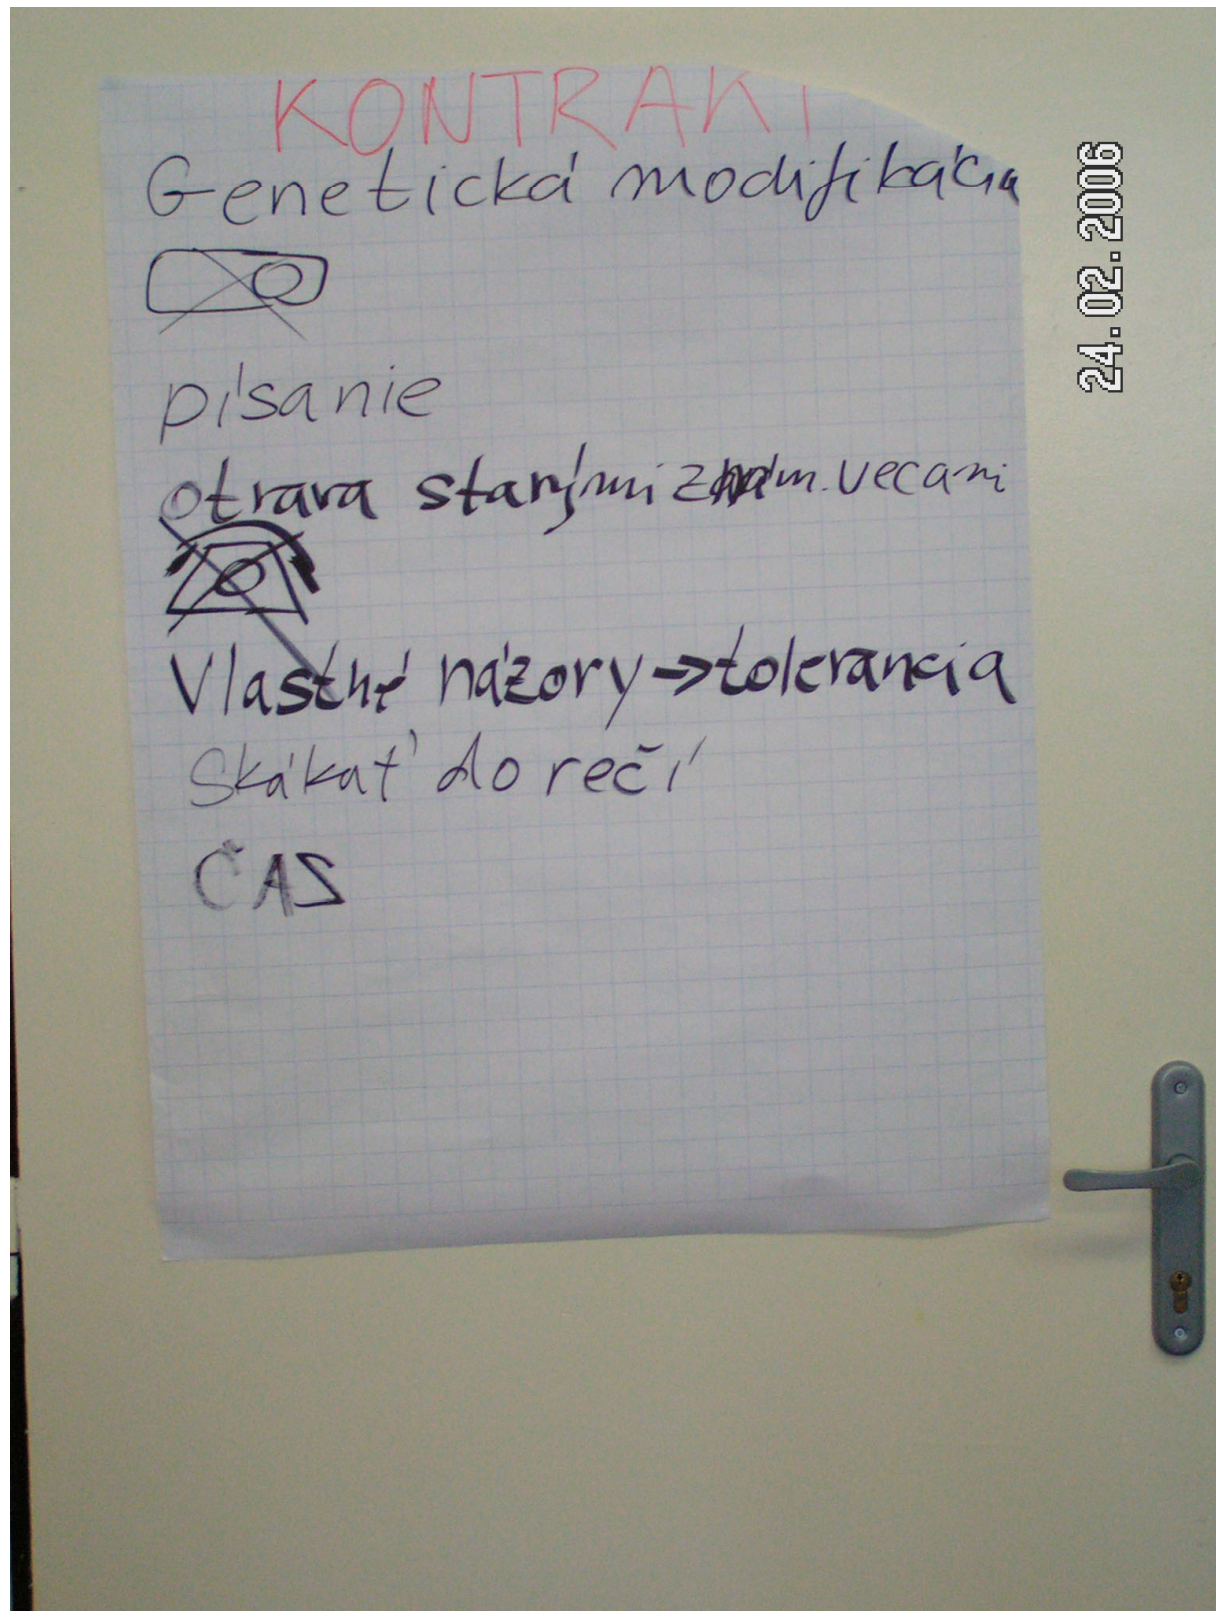 KONTRAKT
Genetická modifikácia
písanie
otrava starými znám. vecami
Vlastné názory → tolerancia
Skákať do rečí
ČAS
24.02.2006